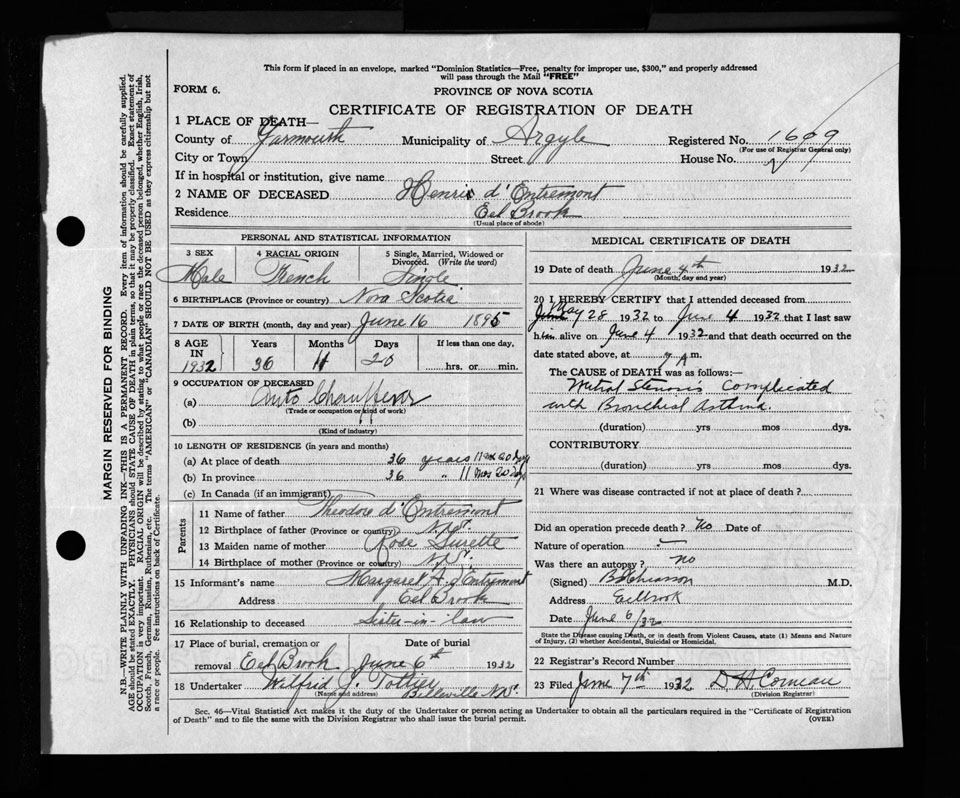 This form if placed in an envelope, marked "Dominion Statistics—Free, penalty for improper use, $300," and properly addressed
will pass through the Mail "FREE"
FORM 6.
PROVINCE OF NOVA SCOTIA
CERTIFICATE OF REGISTRATION OF DEATH
1 PLACE OF DEATH—
County of Yarmouth Municipality of Argyle Registered No. 1699
(For use of Registrar General only)
City or Town Street House No.
If in hospital or institution, give name
2 NAME OF DECEASED Henri d'Entremont
Residence Eel Brook
(Usual place of abode)
PERSONAL AND STATISTICAL INFORMATION
3 SEX 4 RACIAL ORIGIN 5 Single, Married, Widowed or
Divorced. (Write the word)
Male French Single
6 BIRTHPLACE (Province or country) Nova Scotia
7 DATE OF BIRTH (month, day and year) June 16 1895
8 AGE IN Years Months Days If less than one day,
1932 36 11 20 hrs. or min.
9 OCCUPATION OF DECEASED
(a) Auto Chauffeur
(Trade or occupation or kind of work)
(b)
(Kind of industry)
10 LENGTH OF RESIDENCE (in years and months)
(a) At place of death 36 years 11 mos 20 days
(b) In province 36 " 11 mos 20 days
(c) In Canada (if an immigrant)
Parents
11 Name of father Theodore d'Entremont
12 Birthplace of father (Province or country) N.S.
13 Maiden name of mother Rose Surette
14 Birthplace of mother (Province or country) N.S.
15 Informant's name Margaret A. d'Entremont
Address Eel Brook
16 Relationship to deceased Sister-in-law
17 Place of burial, cremation or Date of burial
removal Eel Brook June 6th 1932
18 Undertaker Wilfrid J. Pottier Belleville N.S.
(Name and address)
MEDICAL CERTIFICATE OF DEATH
19 Date of death June 4th 1932
(Month, day and year)
20 I HEREBY CERTIFY that I attended deceased from
May 28 1932 to June 4 1932 that I last saw
him alive on June 4 1932 and that death occurred on the
date stated above, at 7 A m.
The CAUSE of DEATH was as follows:—
Mitral Stenosis Complicated
with Bronchial Asthma.
(duration) yrs mos dys.
CONTRIBUTORY
(duration) yrs mos dys.
21 Where was disease contracted if not at place of death?
Did an operation precede death? No Date of
Nature of operation —
Was there an autopsy? No
(Signed) M.D.
Address Eelbrook
Date June 6/32
State the Disease causing Death, or in death from Violent Causes, state (1) Means and Nature
of Injury, (2) whether Accidental, Suicidal or Homicidal.
22 Registrar's Record Number
23 Filed June 7th 1932 D H Comeau
(Division Registrar)
Sec. 46—Vital Statistics Act makes it the duty of the Undertaker or person acting as Undertaker to obtain all the particulars required in the "Certificate of Registration
of Death" and to file the same with the Division Registrar who shall issue the burial permit. (OVER)
MARGIN RESERVED FOR BINDING
N.B.—WRITE PLAINLY WITH UNFADING INK—THIS IS A PERMANENT RECORD. Every item of information should be carefully supplied.
AGE should be stated EXACTLY. PHYSICIANS should STATE CAUSE OF DEATH in plain terms, so that it may be properly classified. Exact statement of
OCCUPATION is very important. RACIAL ORIGIN will be described by stating to what people or race the deceased person belonged, whether English, Irish,
Scotch, French, German, Russian, Ruthenian, etc. The terms "AMERICAN" or "CANADIAN" SHOULD NOT BE USED as they express citizenship but not
a race or people. See instructions on back of Certificate.